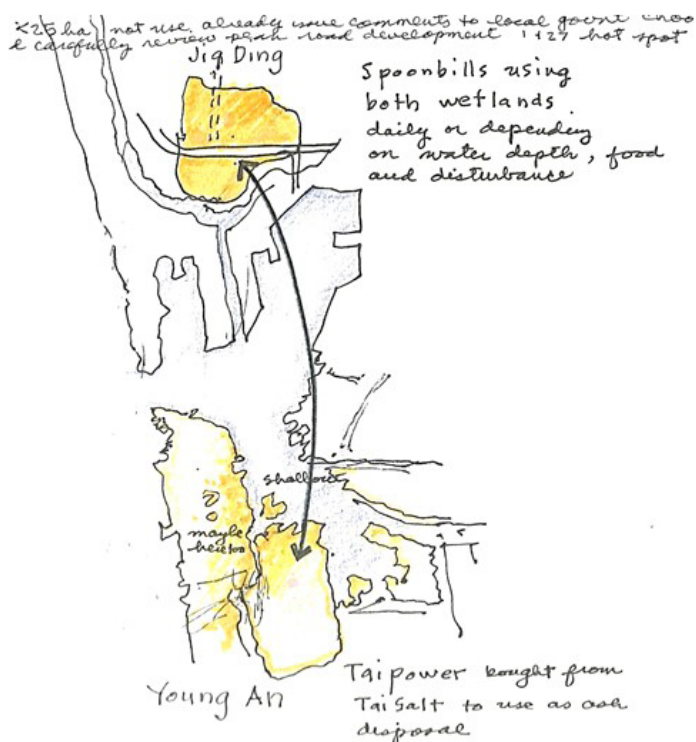 <25 ha not use. already issue comments to local govnt
& carefully review plan road development 1+27 hot spot
Jia Ding
Spoonbills using
both wetlands
daily or depending
on water depth, food
and disturbance
shallow
maybe
here too
Young An
Taipower bought from
TaiSalt to use as ash
disposal